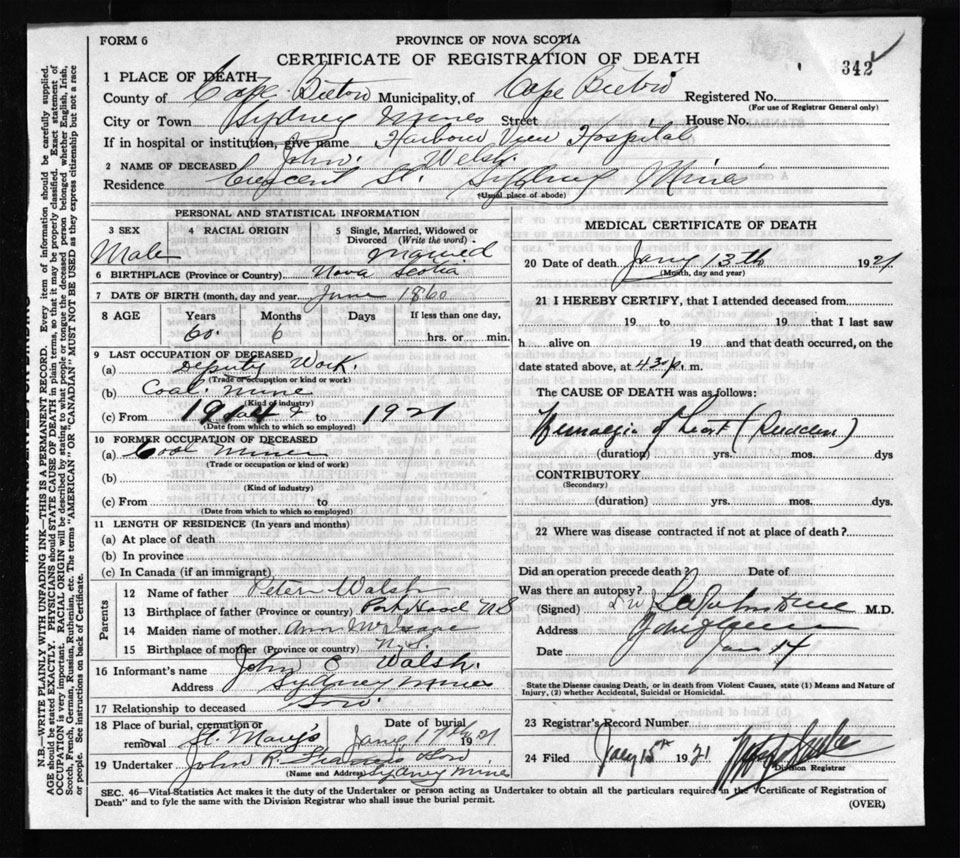 FORM 6
PROVINCE OF NOVA SCOTIA
CERTIFICATE OF REGISTRATION OF DEATH
342
1 PLACE OF DEATH
County of Cape Breton Municipality, of Cape Breton Registered No.
(For use of Registrar General only)
City or Town Sydney Mines Street House No.
If in hospital or institution, give name Harbour View Hospital
2 NAME OF DECEASED John Welsh
Residence Crescent St. Sydney Mines
(Usual place of abode)
PERSONAL AND STATISTICAL INFORMATION
3 SEX
4 RACIAL ORIGIN
5 Single, Married, Widowed or Divorced (Write the word)
Male
Married
6 BIRTHPLACE (Province or Country) Nova Scotia
7 DATE OF BIRTH (month, day and year) June 1860
8 AGE Years Months Days If less than one day,
60 6 hrs. or min.
9 LAST OCCUPATION OF DECEASED
(a) Deputy Work
(Trade or occupation or kind of work)
(b) Coal Mine
(Kind of industry)
(c) From 1914 to 1921
(Date from which to which so employed)
10 FORMER OCCUPATION OF DECEASED
(a) Coal Miner
(Trade or occupation or kind of work)
(b)
(Kind of industry)
(c) From to
(Date from which to which so employed)
11 LENGTH OF RESIDENCE (In years and months)
(a) At place of death
(b) In province
(c) In Canada (if an immigrant)
Parents
12 Name of father Peter Walsh
13 Birthplace of father (Province or country) Port Hood N S
14 Maiden name of mother Ann McIsaac
15 Birthplace of mother (Province or country) N.S.
16 Informant's name John E Walsh
Address Sydney Mines
17 Relationship to deceased Son
18 Place of burial, cremation or removal St. Mary's
Date of burial Jany 17th 1921
19 Undertaker John R. & Son
(Name and Address) Sydney Mines
MEDICAL CERTIFICATE OF DEATH
20 Date of death Jany 13th 1921
(Month, day and year)
21 I HEREBY CERTIFY, that I attended deceased from
19 to 19 that I last saw
h alive on 19 and that death occurred, on the
date stated above, at 4 30 p. m.
The CAUSE OF DEATH was as follows:
Neuralgia of heart (Sudden)
(duration) yrs. mos. dys
CONTRIBUTORY
(Secondary)
(duration) yrs. mos. dys.
22 Where was disease contracted if not at place of death?
Did an operation precede death? Date of
Was there an autopsy?
(Signed) Johnstone M.D.
Address
Date Jan 14
State the Disease causing Death, or in death from Violent Causes, state (1) Means and Nature of
Injury, (2) whether Accidental, Suicidal or Homicidal.
23 Registrar's Record Number
24 Filed Jany 15th 1921
Division Registrar
SEC. 46—Vital Statistics Act makes it the duty of the Undertaker or person acting as Undertaker to obtain all the particulars required in the "Certificate of Registration of
Death" and to fyle the same with the Division Registrar who shall issue the burial permit.
(OVER)
N.B.—WRITE PLAINLY WITH UNFADING INK—THIS IS A PERMANENT RECORD. Every item of information should be carefully supplied.
AGE should be stated EXACTLY. PHYSICIANS should STATE CAUSE OF DEATH in plain terms, so that it may be properly classified. Exact statement of
OCCUPATION is very important. RACIAL ORIGIN will be described by stating to what people or tongue the deceased person belonged whether English, Irish,
Scotch, French, German, Russian, Ruthenian, etc. The terms "AMERICAN" OR "CANADIAN" MUST NOT BE USED as they express citizenship but not a race
or people. See instructions on back of Certificate.